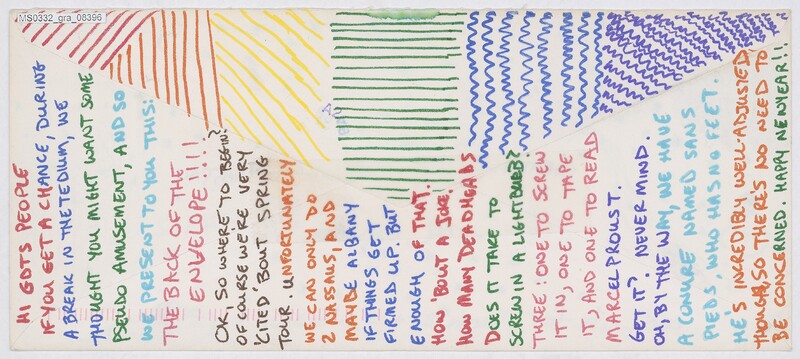 MS0332_gra_08396
HI GDTS PEOPLE
IF YOU GET A CHANCE, DURING
A BREAK IN THE TEDIUM, WE
THOUGHT YOU MIGHT WANT SOME
PSEUDO AMUSEMENT, AND SO
WE PRESENT TO YOU THIS:
THE BACK OF THE
ENVELOPE!!!!
OK, SO WHERE TO BEGIN?
OF COURSE WE'RE VERY
'CITED 'BOUT SPRING
TOUR. UNFORTUNATELY
WE CAN ONLY DO
2 NASSAUS, AND
MAYBE ALBANY
IF THINGS GET
FIRMED UP. BUT
ENOUGH OF THAT.
HOW 'BOUT A JOKE.
HOW MANY DEADHEADS
DOES IT TAKE TO
SCREW IN A LIGHTBULB?
THREE: ONE TO SCREW
IT IN, ONE TO TAPE
IT, AND ONE TO READ
MARCEL PROUST.
GET IT? NEVER MIND.
OH, BY THE WAY, WE HAVE
A CONURE NAMED SANS
PIEDS, WHO HAS NO FEET.
HE'S INCREDIBLY WELL-ADJUSTED
THOUGH, SO THERE'S NO NEED TO
BE CONCERNED. HAPPY NEW YEAR!!